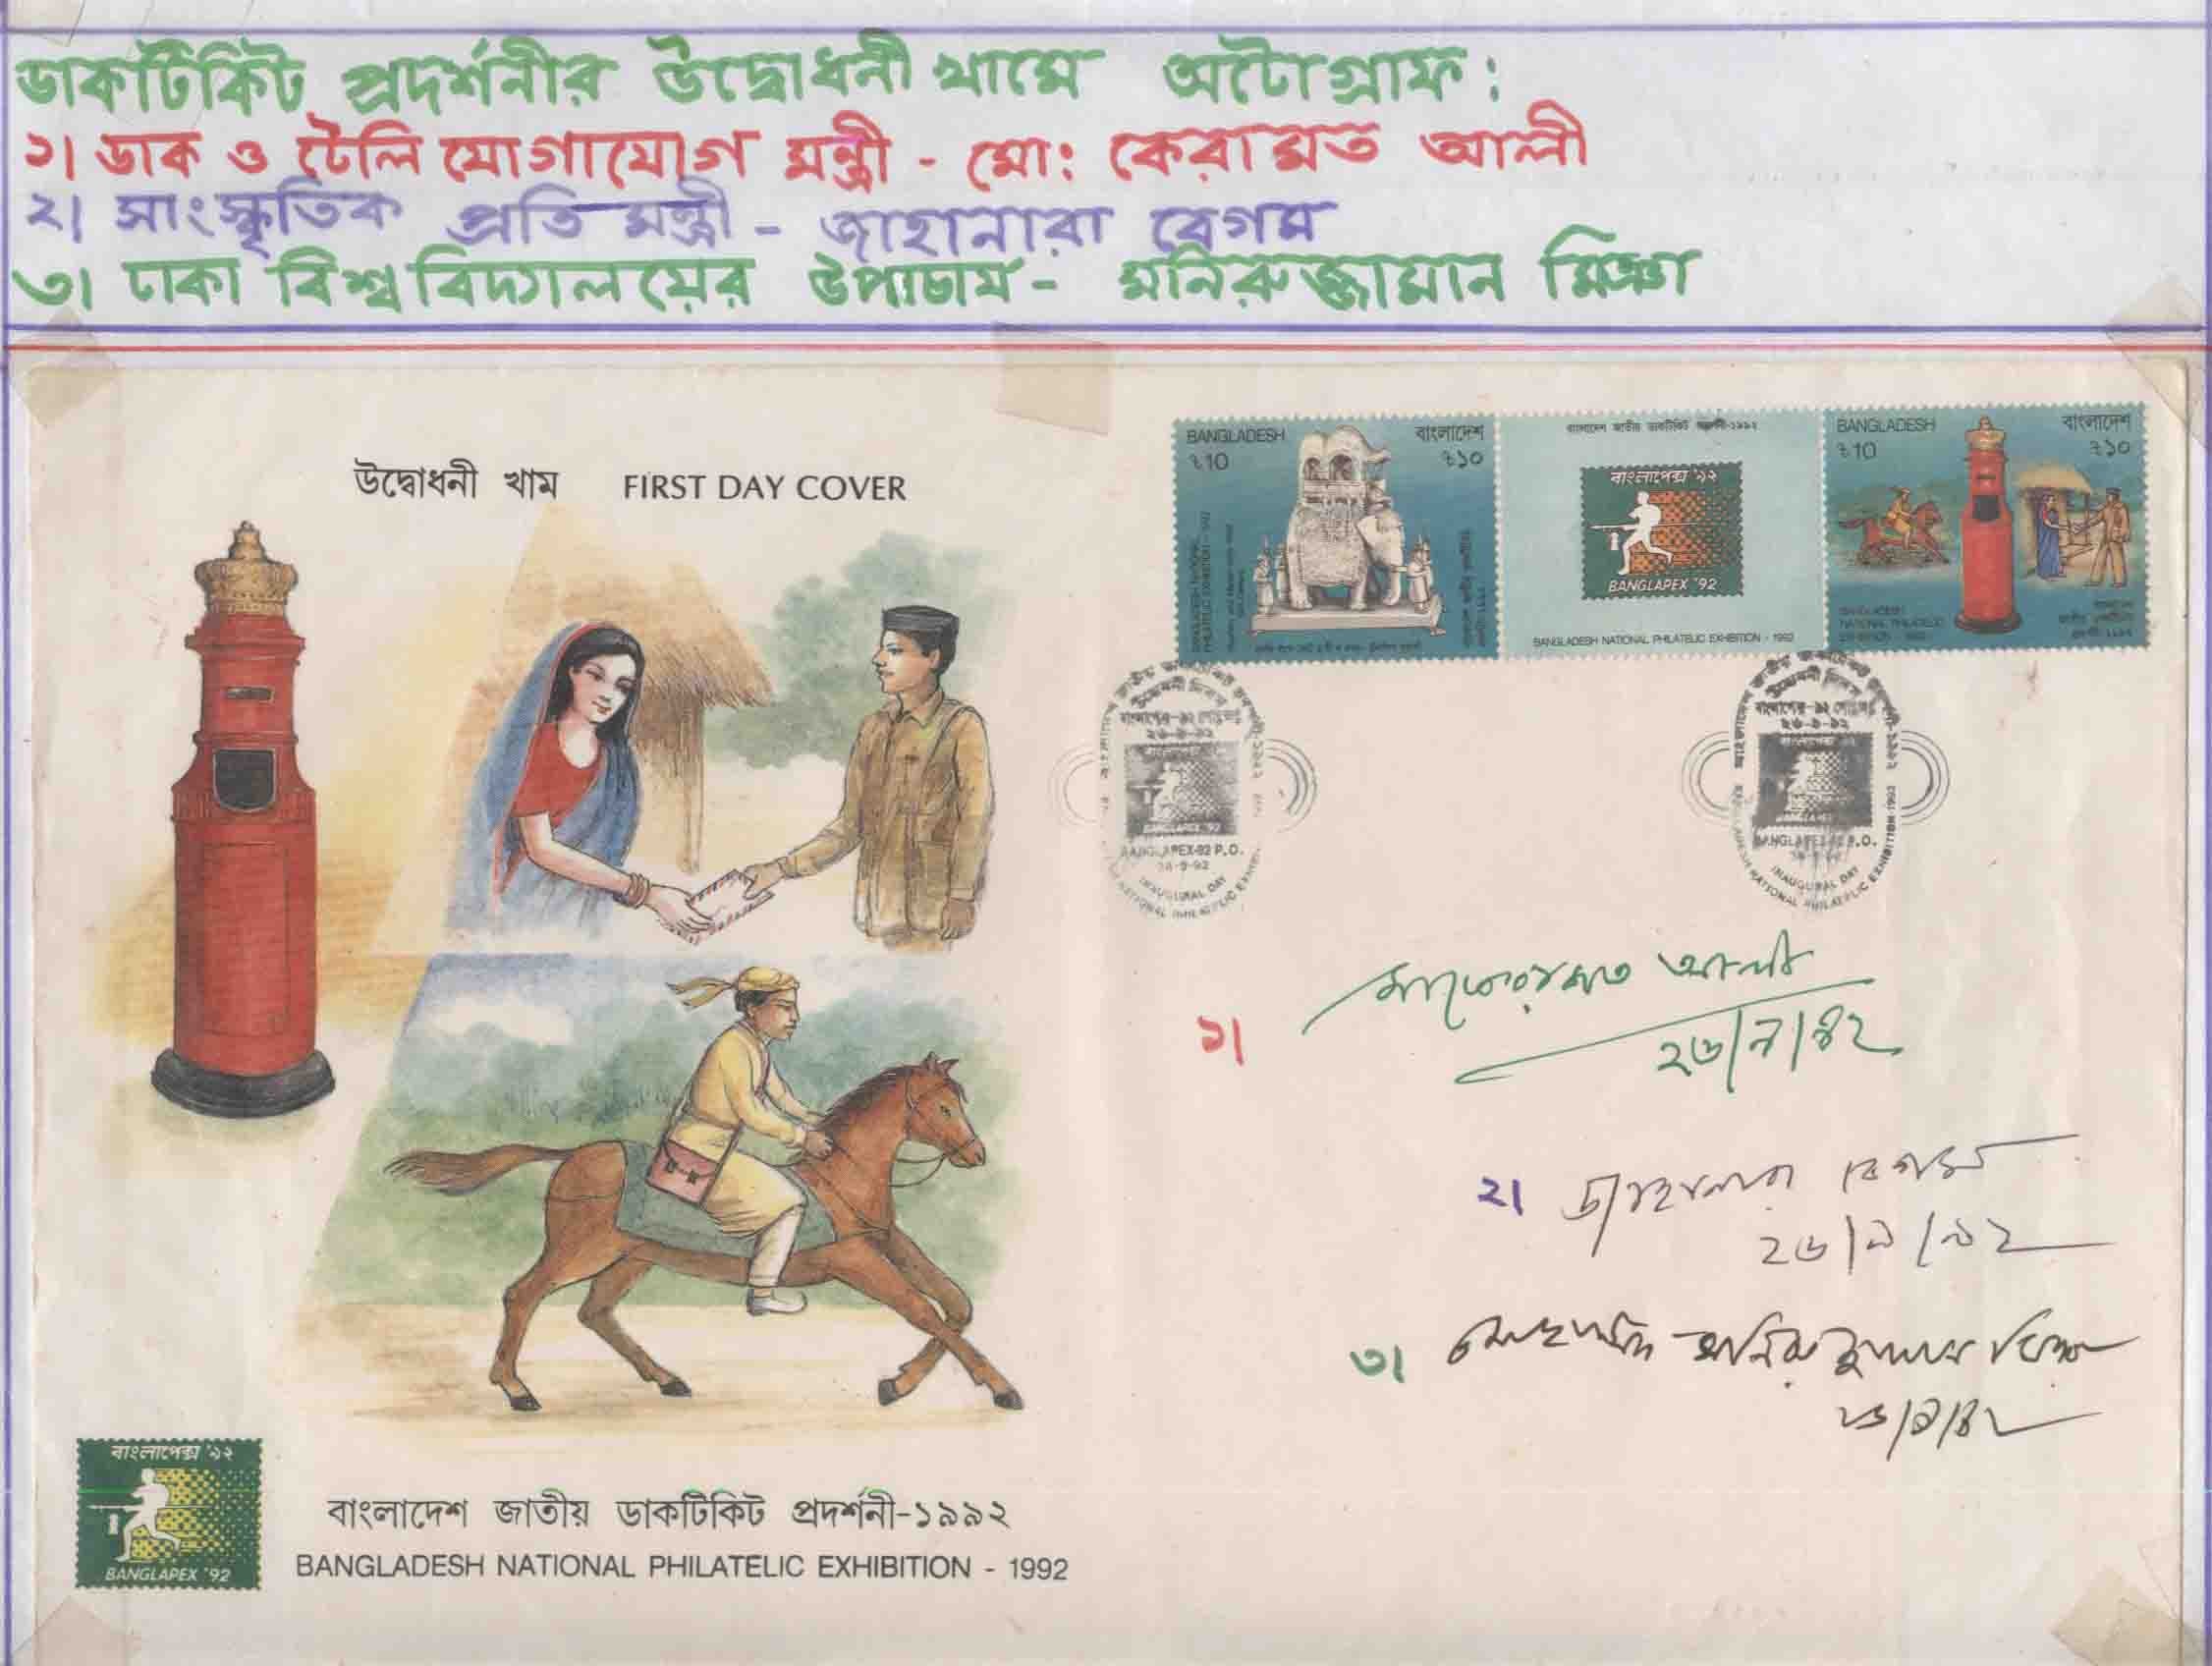 ডাকটিকিট প্রদর্শনীর উদ্বোধনী খামে অটোগ্রাফ:
১। ডাক ও টেলি যোগাযোগ মন্ত্রী - মো: কেরামত আলী
২। সাংস্কৃতিক প্রতি মন্ত্রী - জাহানারা বেগম
৩। ঢাকা বিশ্ববিদ্যালয়ের উপাচার্য - মনিরুজ্জামান মিঞা
উদ্বোধনী খাম FIRST DAY COVER
BANGLADESH বাংলাদেশ
৳10 ৳১০
বাংলাদেশ জাতীয় ডাকটিকিট প্রদর্শনী-১৯৯২
বাংলাপেক্স '৯২
BANGLAPEX '92
BANGLADESH NATIONAL PHILATELIC EXHIBITION - 1992
BANGLADESH বাংলাদেশ
৳10 ৳১০
BANGLADESH
NATIONAL PHILATELIC
EXHIBITION - 1992
২৬-৯-৯২
BANGLAPEX-92 P.O.
26-9-92
INAUGURAL DAY
NATIONAL PHILATELIC
২৬-৯-৯২
BANGLAPEX-92 P.O.
INAUGURAL DAY
NATIONAL PHILATELIC EXHIBITION-1992
১। কেরামত আলী
২৬/৯/৯২
২। জাহানারা বেগম
২৬/৯/৯২
৩। মোহাম্মদ মনিরুজ্জামান মিঞা
২৬/৯/৯২
বাংলাপেক্স '৯২
BANGLAPEX '92
বাংলাদেশ জাতীয় ডাকটিকিট প্রদর্শনী-১৯৯২
BANGLADESH NATIONAL PHILATELIC EXHIBITION - 1992